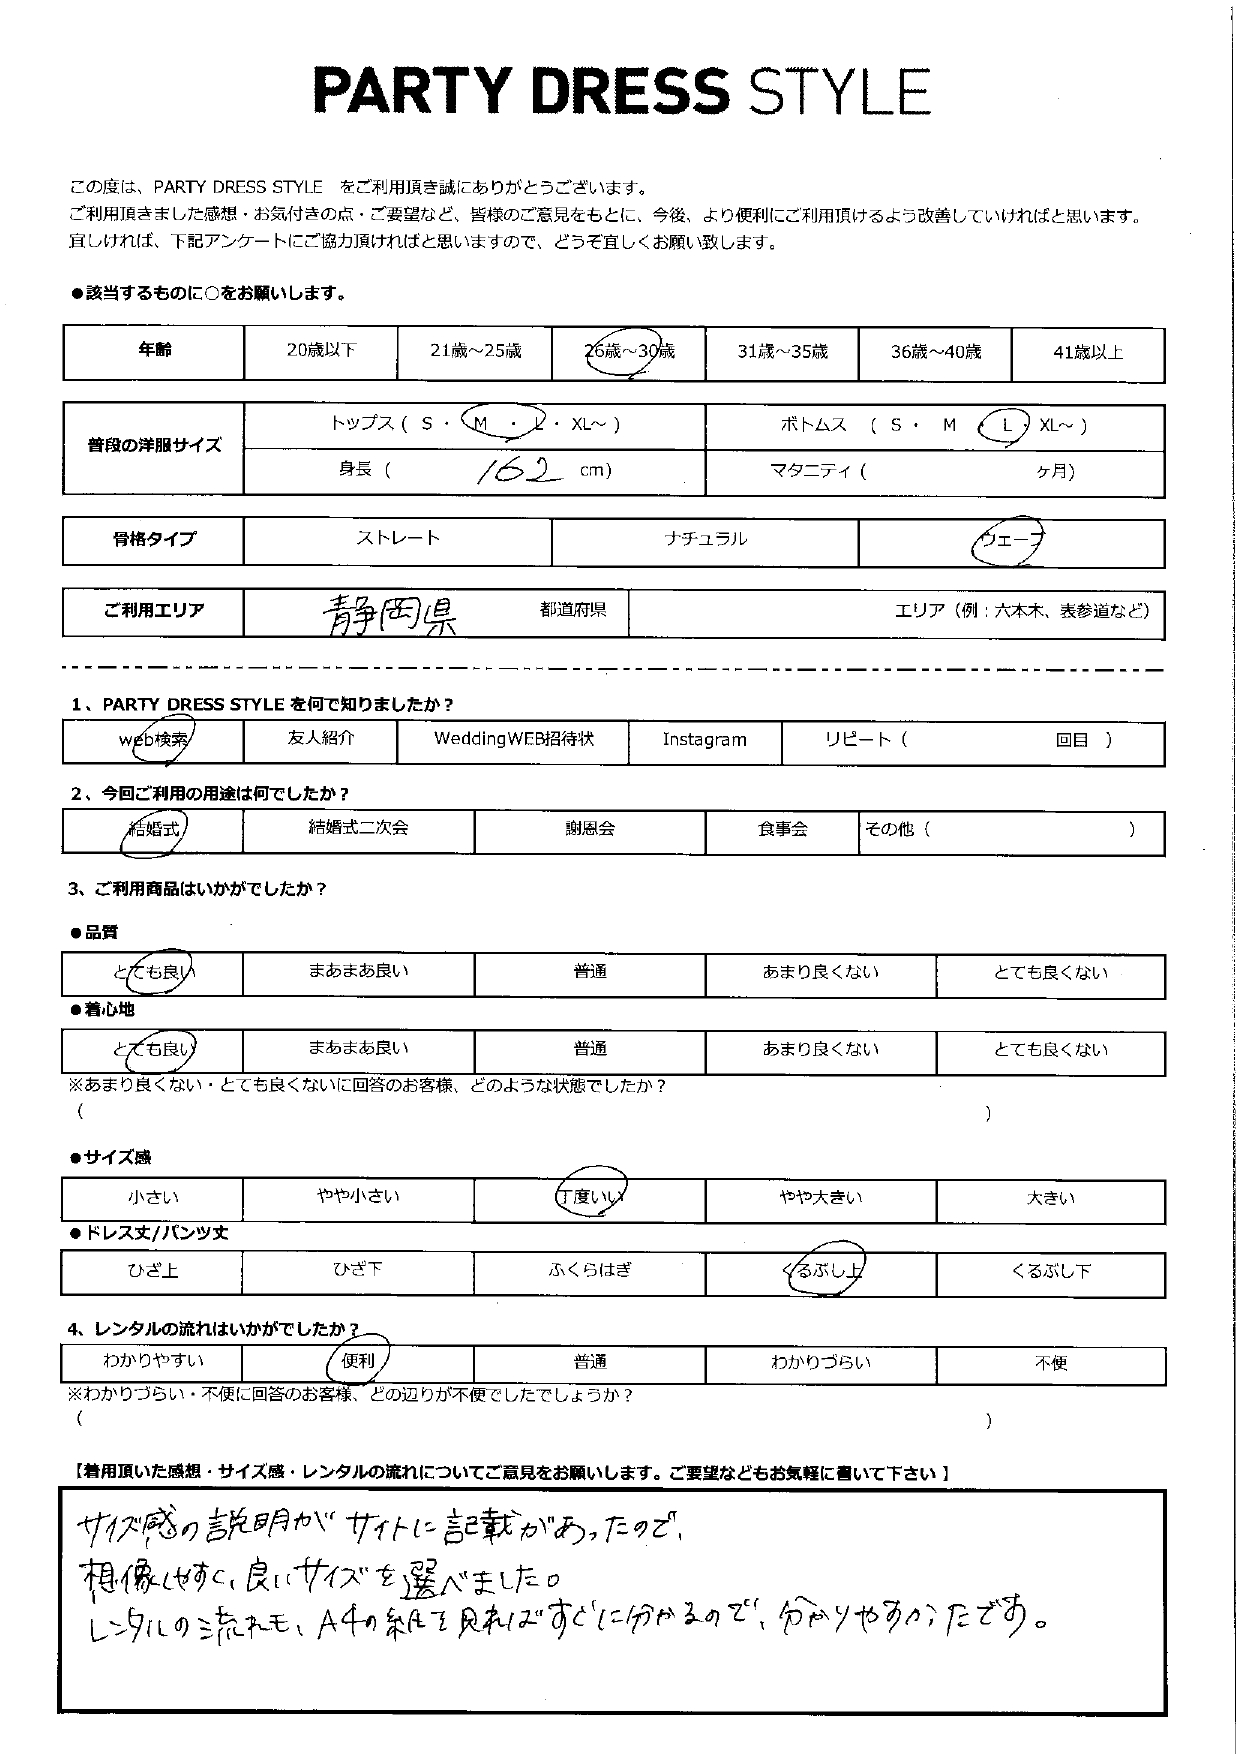 PARTY DRESS STYLE
この度は、PARTY DRESS STYLE をご利用頂き誠にありがとうございます。
ご利用頂きました感想・お気付きの点・ご要望など、皆様のご意見をもとに、今後、より便利にご利用頂けるよう改善していければと思います。
宜しければ、下記アンケートにご協力頂ければと思いますので、どうぞ宜しくお願い致します。
●該当するものに○をお願いします。
年齢 20歳以下 21歳～25歳 26歳～30歳 31歳～35歳 36歳～40歳 41歳以上
普段の洋服サイズ トップス ( S ・ M ・ L ・ XL～ ) ボトムス ( S ・ M ・ L ・ XL～ )
身長 ( 162 cm) マタニティ ( ヶ月)
骨格タイプ ストレート ナチュラル ウェーブ
ご利用エリア 静岡県 都道府県 エリア（例：六本木、表参道など）
1、PARTY DRESS STYLE を何で知りましたか？
web検索 友人紹介 WeddingWEB招待状 Instagram リピート ( 回目 )
2、今回ご利用の用途は何でしたか？
結婚式 結婚式二次会 謝恩会 食事会 その他 ( )
3、ご利用商品はいかがでしたか？
●品質
とても良い まあまあ良い 普通 あまり良くない とても良くない
●着心地
とても良い まあまあ良い 普通 あまり良くない とても良くない
※あまり良くない・とても良くないに回答のお客様、どのような状態でしたか？
( )
●サイズ感
小さい やや小さい 丁度いい やや大きい 大きい
●ドレス丈/パンツ丈
ひざ上 ひざ下 ふくらはぎ くるぶし上 くるぶし下
4、レンタルの流れはいかがでしたか？
わかりやすい 便利 普通 わかりづらい 不便
※わかりづらい・不便に回答のお客様、どの辺りが不便でしたでしょうか？
( )
【着用頂いた感想・サイズ感・レンタルの流れについてご意見をお願いします。ご要望などもお気軽に書いて下さい】
サイズ感の説明がサイトに記載があったので、
想像しやすく、良いサイズを選べました。
レンタルの流れも、A4の紙を見ればすぐに分かるので、分かりやすかったです。